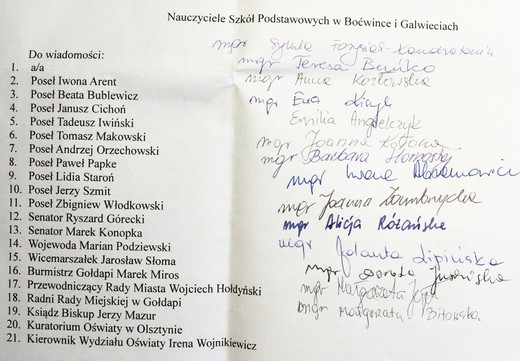 Nauczyciele Szkół Podstawowych w Boćwince i Galwieciach
Do wiadomości:
1. a/a
2. Poseł Iwona Arent
3. Poseł Beata Bublewicz
4. Poseł Janusz Cichoń
5. Poseł Tadeusz Iwiński
6. Poseł Tomasz Makowski
7. Poseł Andrzej Orzechowski
8. Poseł Paweł Papke
9. Poseł Lidia Staroń
10. Poseł Jerzy Szmit
11. Poseł Zbigniew Włodkowski
12. Senator Ryszard Górecki
13. Senator Marek Konopka
14. Wojewoda Marian Podziewski
15. Wicemarszałek Jarosław Słoma
16. Burmistrz Gołdapi Marek Miros
17. Przewodniczący Rady Miasta Wojciech Hołdyński
18. Radni Rady Miejskiej w Gołdapi
19. Ksiądz Biskup Jerzy Mazur
20. Kuratorium Oświaty w Olsztynie
21. Kierownik Wydziału Oświaty Irena Wojnikiewicz
mgr
mgr Teresa Bęćko
mgr Anna Kozłowska
mgr Ewa
Emilia
mgr Joanna
mgr Barbara
mgr Iwona Abramowicz
mgr Joanna
mgr Alicja Różańska
mgr Jolanta Lipińska
mgr Dorota
mgr Małgorzata
mgr Małgorzata Bitowska